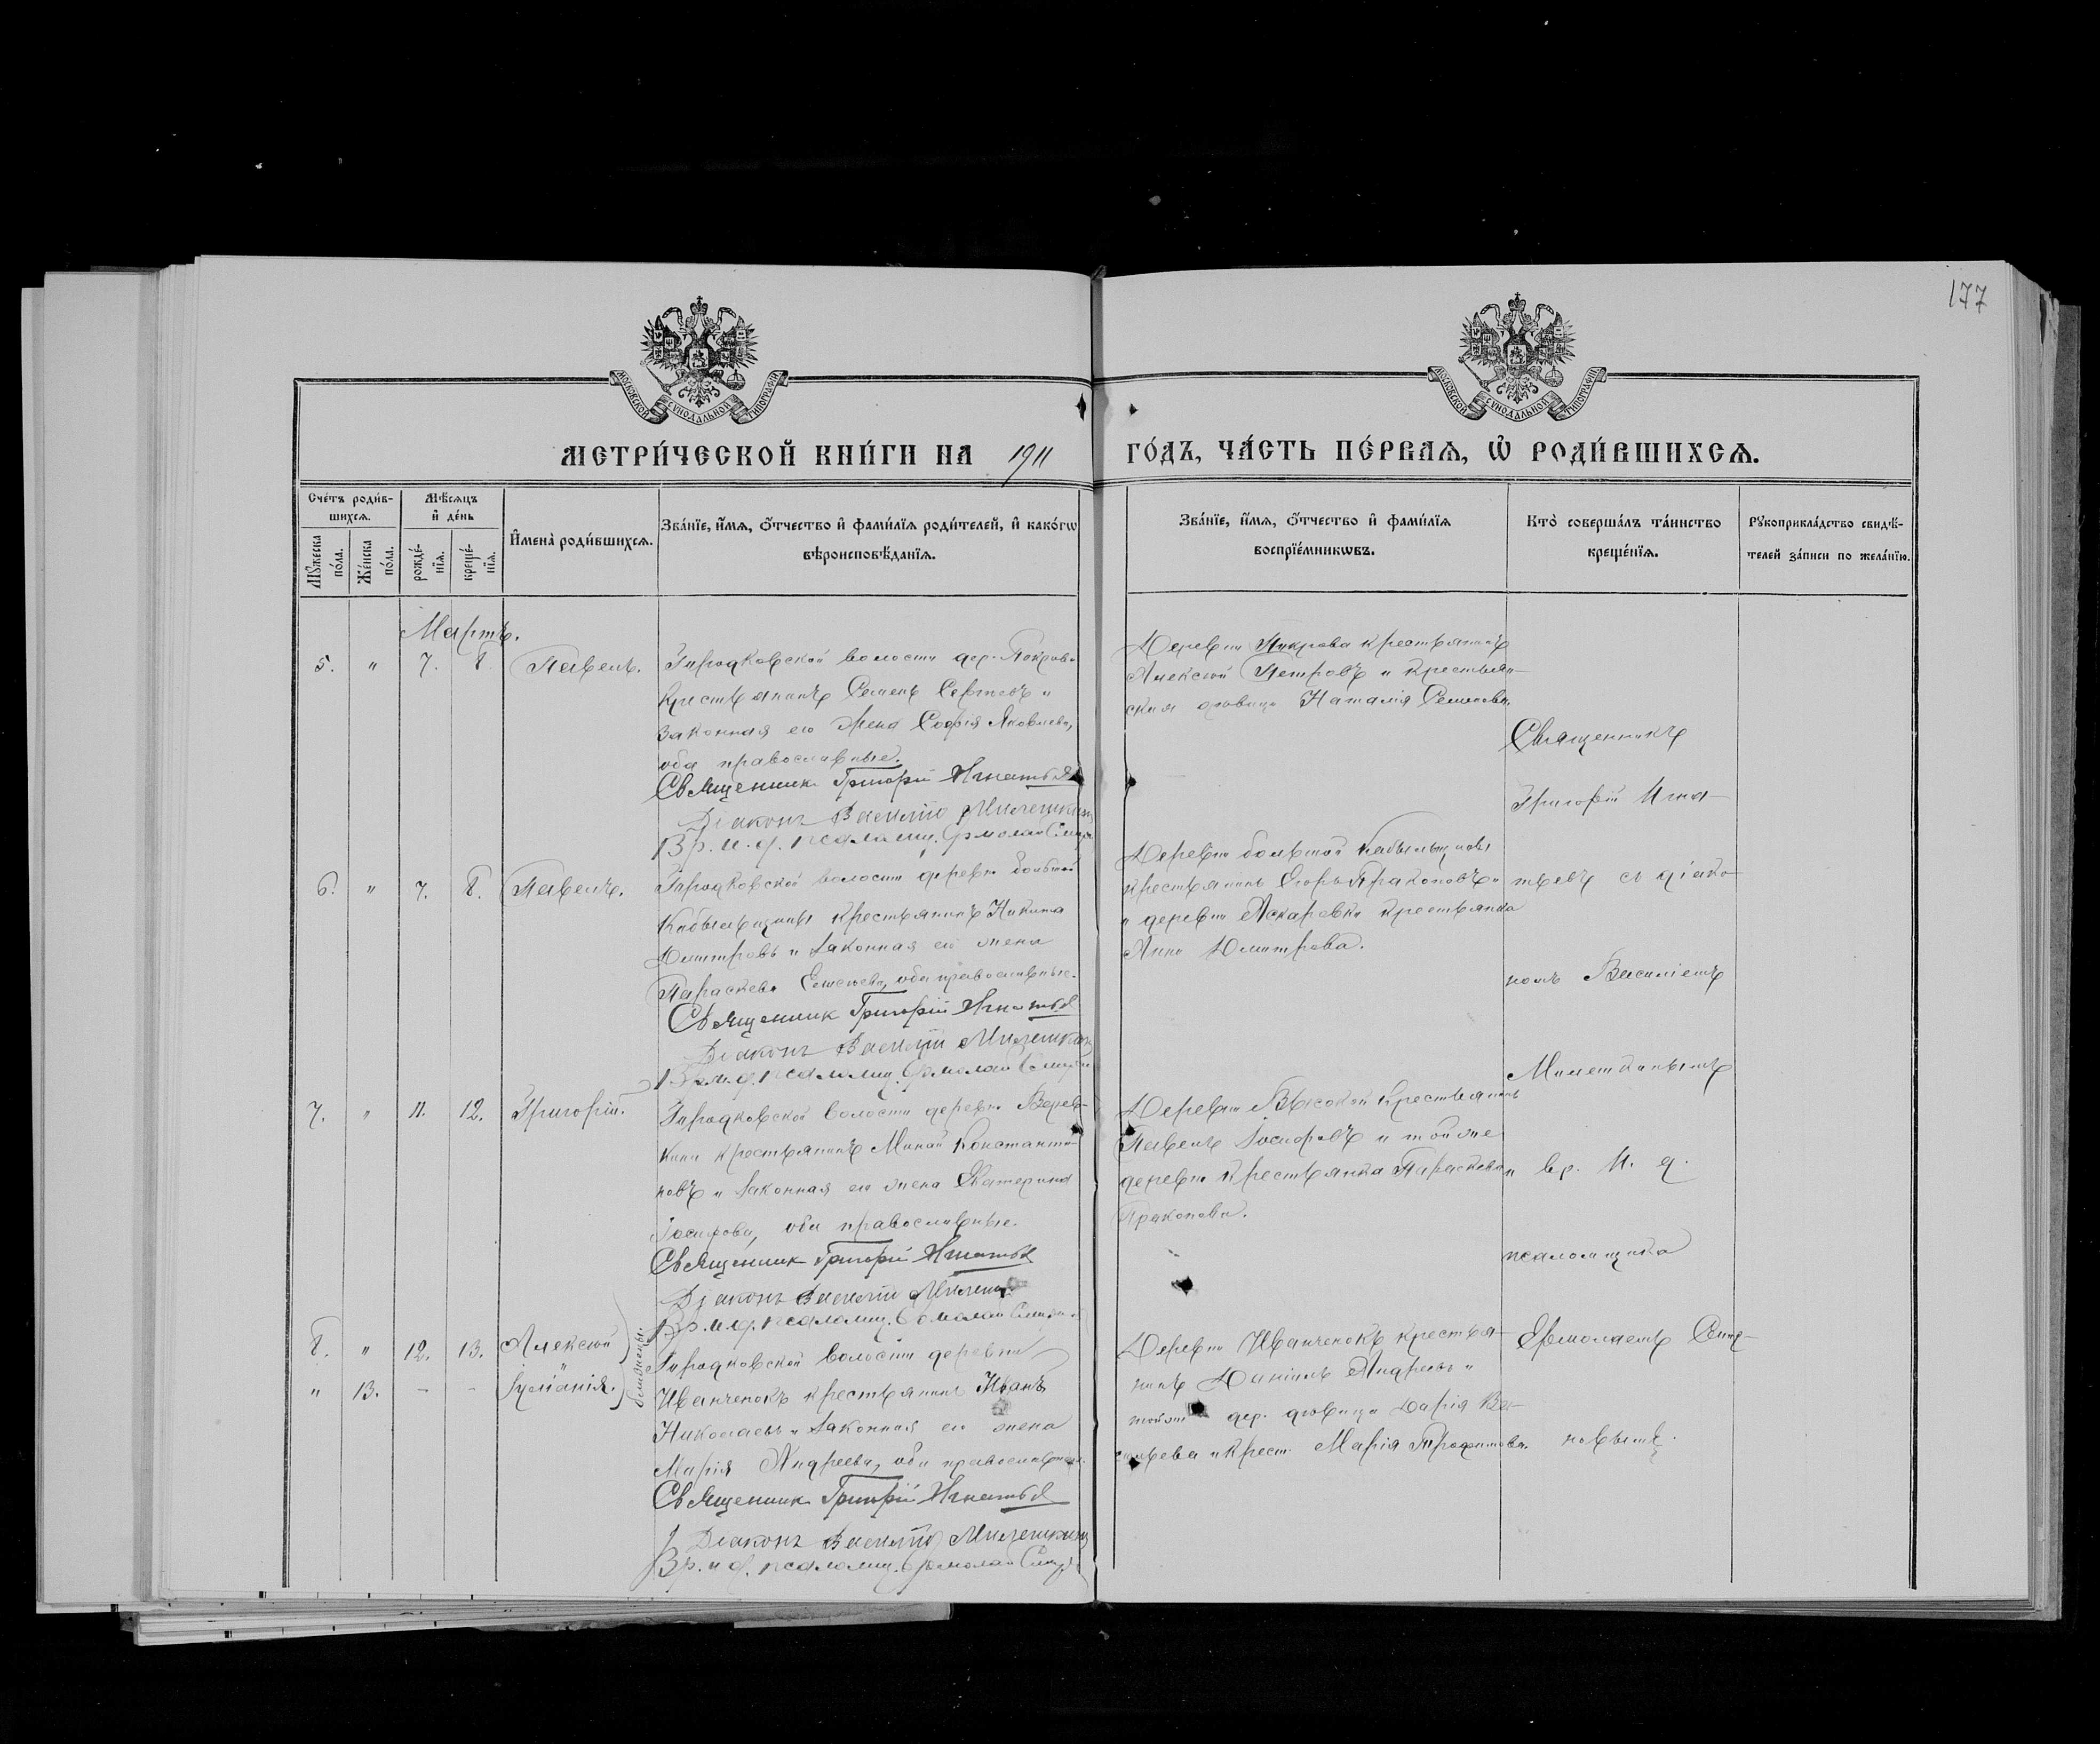 177
МОСКОВСКОЙ СѴНОДАЛЬНОЙ ТИПОГРАФІИ
МОСКОВСКОЙ СѴНОДАЛЬНОЙ ТИПОГРАФІИ
МЕТРИ́ЧЕСКОЙ КНИ́ГИ НА 1911 ГО́ДЪ, ЧА́СТЬ ПЕ́РВАѦ, Ѡ҆ РОДИ́ВШИХСѦ.
Сче́тъ роди́в-
шихсѧ.
Мꙋ́жеска по́ла.
Же́нска по́ла.
Мѣ́сѧцъ
и҆ де́нь
рожде́-
нїѧ.
креще́-
нїѧ.
И҆мена̀ роди́вшихсѧ.
Зва́нїе, и҆́мѧ, ѻ҆́тчество и҆ фами́лїѧ роди́телей, и҆ како́гѡ
вѣроисповѣ́данїѧ.
Зва́нїе, и҆́мѧ, ѻ҆́тчество и҆ фами́лїѧ
воспрїе́мникѡвъ.
Кто̀ соверша́лъ та́инство
креще́нїѧ.
Рꙋкоприкла́дство свидѣ́-
телей за́писи по жела́нїю.
Мартъ.
5. " 7. 8. Павелъ.
Городковской волости дер. Покрова
крестьянинъ Семенъ Сергеевъ и
законная его жена Софія Яковлева,
оба православные.
Священник Григорій Игнатьев
Діаконъ Василій Милешкинъ
Вр. и. д. псаломщ. Ермолай
Деревни Покрова крестьянинъ
Алексѣй Петровъ и крестьян-
ская дѣвица Наталія Семенова.
6. " 7. 8. Павелъ.
Городковской волости деревни большой
Кобыльщины крестьянинъ Никита
Дмитровъ и законная его жена
Параскева Елисеева, оба православные.
Священник Григорій Игнатьев
Діаконъ Василій Милешкинъ
Вр. и. д. псаломщ. Ермолай
Деревни большой Кобыльщины
крестьянинъ Егоръ Прокоповъ
и деревни Аскаровки крестьянка
Анна Дмитрова.
7. " 11. 12. Григорій.
Городковской волости деревни Верев-
кини крестьянинъ Минай Константи-
новъ и законная его жена Екатерина
Іосифова, оба православные.
Священник Григорій Игнатьев
Діаконъ Василій
Вр. и. д. псаломщ. Ермолай
Деревни Высокой крестьянинъ
Павелъ Іосифовъ и той же
деревни крестьянка Параскева
Прокопова.
8. " 12. 13. Алексѣй
" 13. - - Іуліанія.
близнецы.
Городковской волости деревни
Иванченокъ крестьянинъ Иванъ
Николаевъ и законная его жена
Марія Андреева, оба православные.
Священник Григорій Игнатьев
Діаконъ Василій Милешкинъ
Вр. и д. псаломщ. Ермолай
Деревни Иванченокъ крестья-
нинъ Даніилъ Андреевъ и
той же дер. дѣвица Дарія Ва-
сильева и крест. Марія Трофимова.
Священникъ
Григорій Игна-
тьевъ съ діако-
номъ Василіемъ
Милешкинымъ
и вр. и. д.
псаломщика
Ермолаемъ
новымъ.